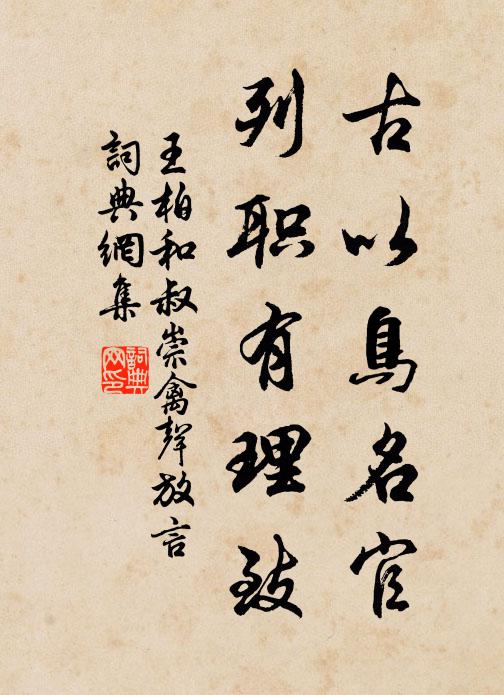 古以鳥名官
列职有理致
王柏和叔崇禽聲放言
詞典網集
詞典網印